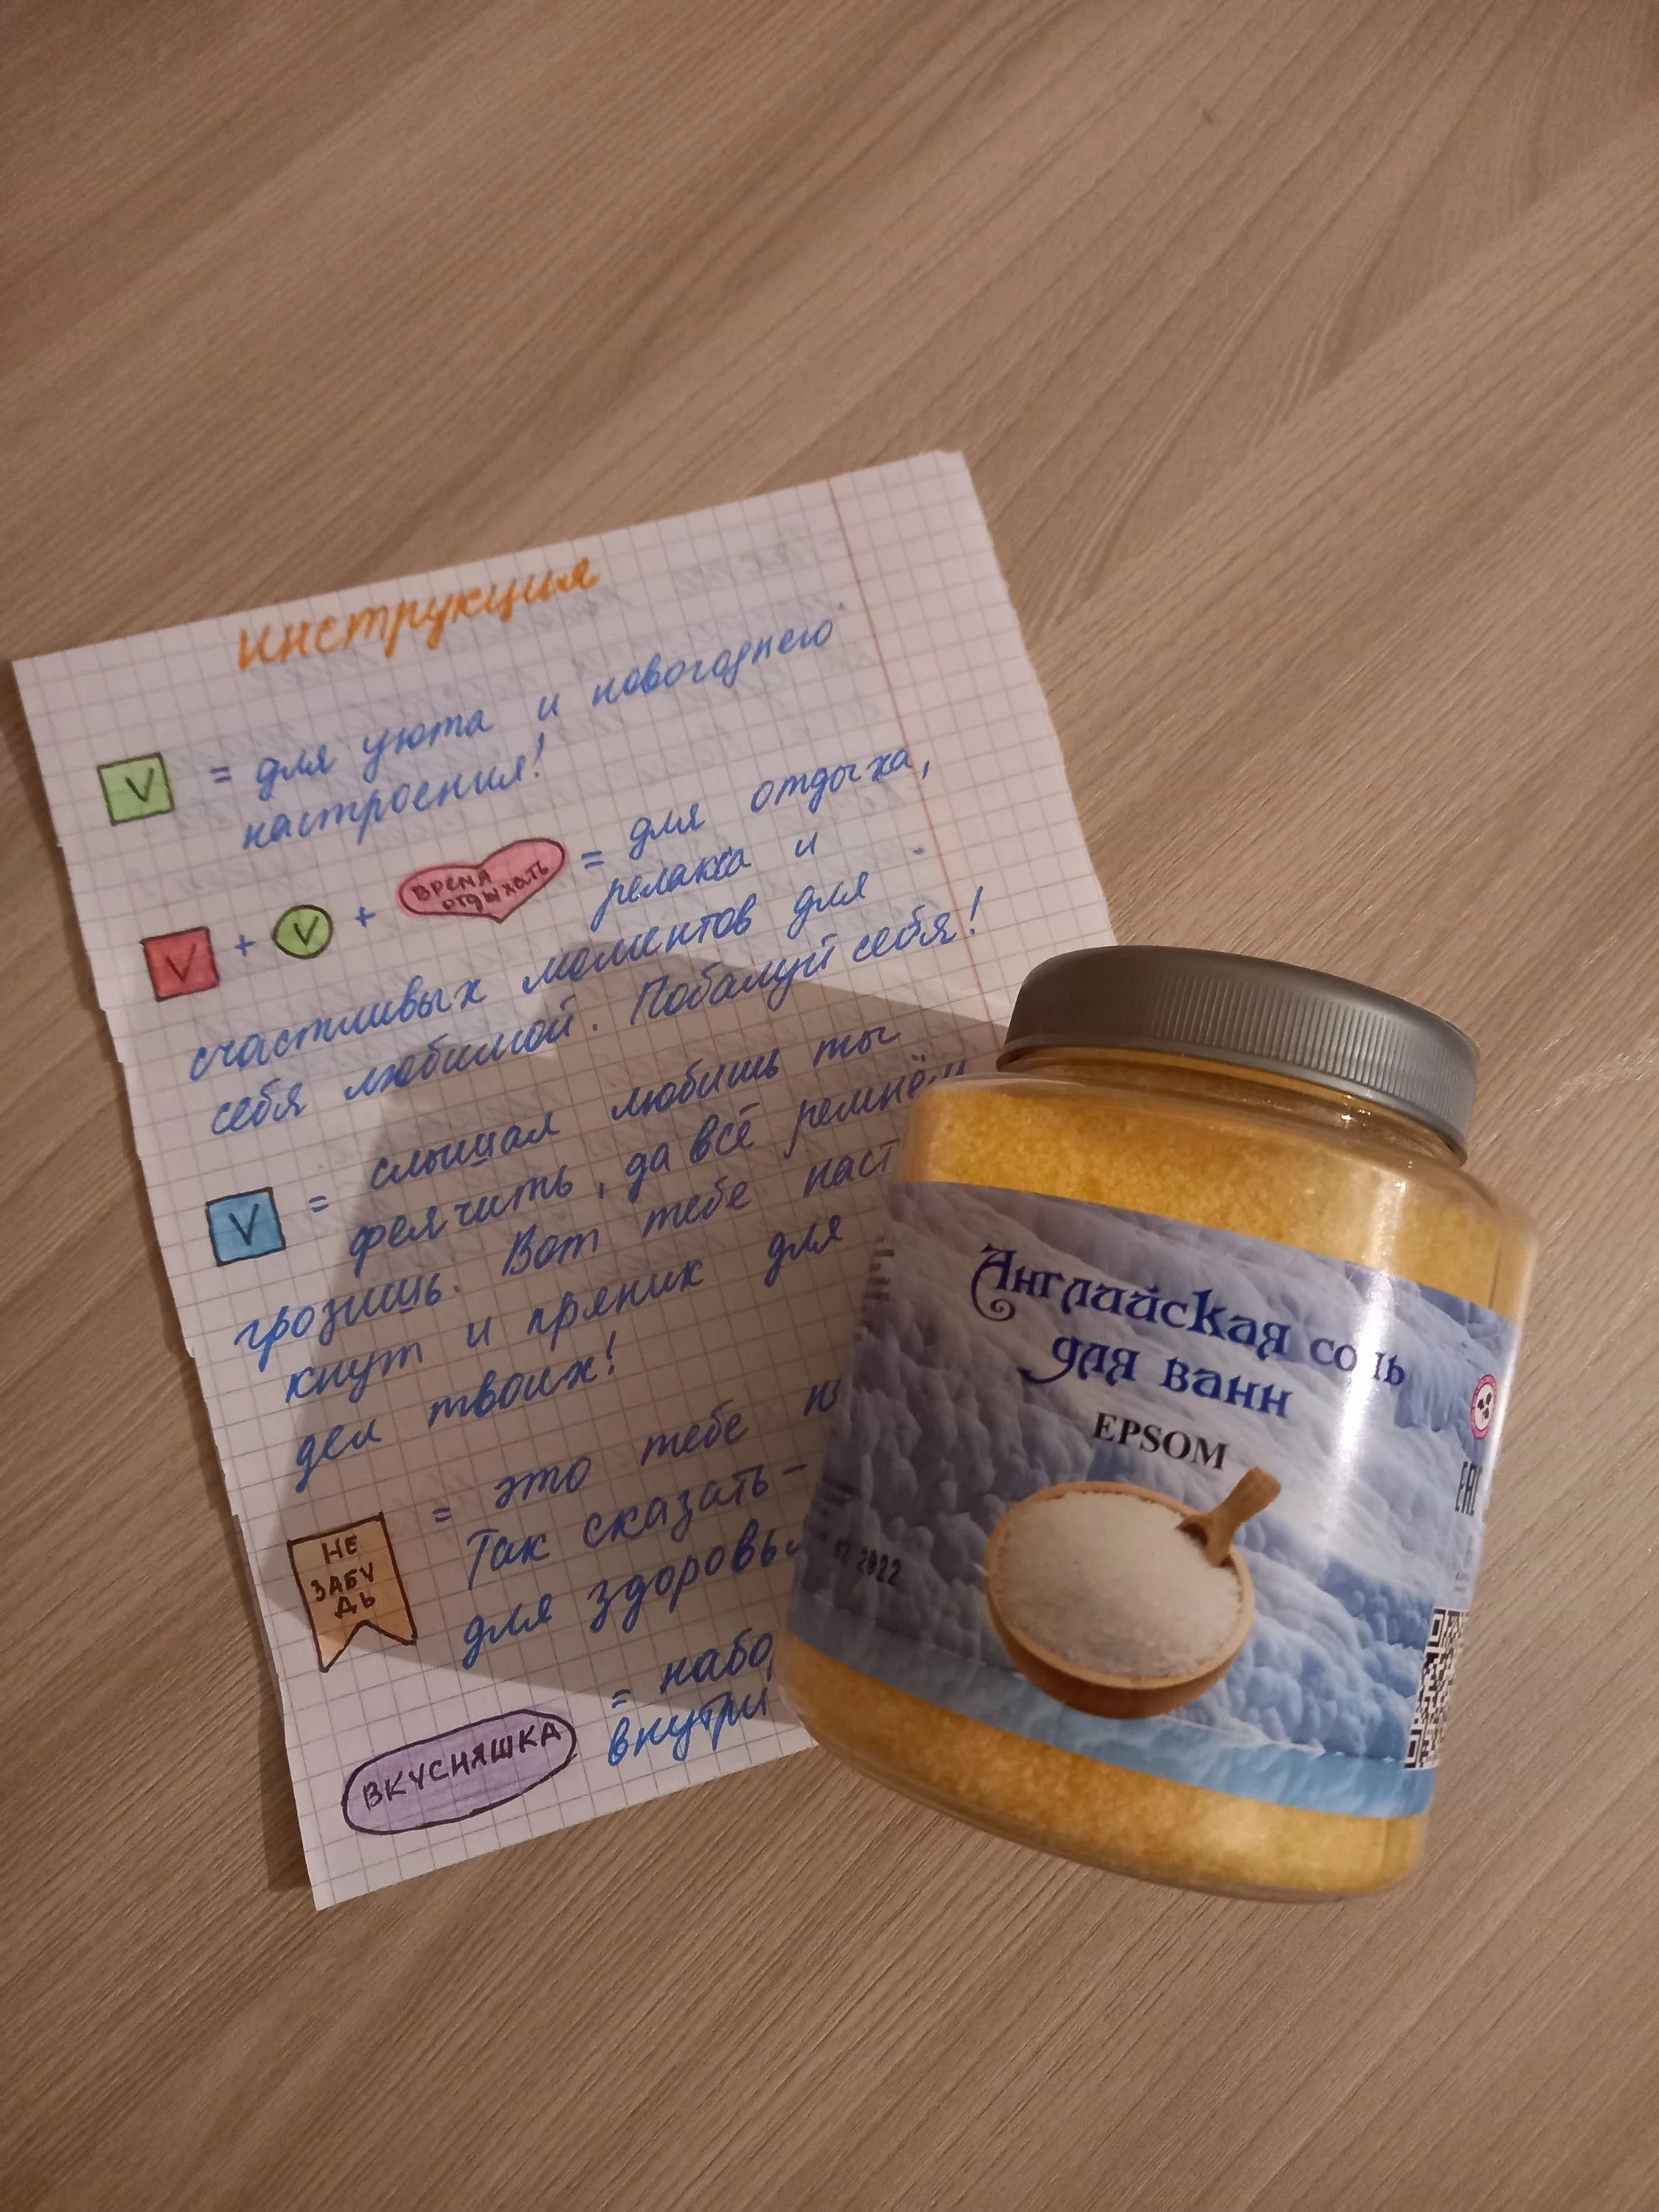 Инструкция
V = для уюта и новогоднего
настроения!
V + V + ВРЕМЯ ОТДЫХАТЬ = для отдыха,
релакса и
счастливых моментов для
себя любимой. Побалуй себя!
V = слышал любишь ты
феячить, да всё ремнём
грозишь. Вот тебе наст
кнут и пряник для
дел твоих!
НЕ
ЗАБУ
ДЬ
= это тебе
Так сказать –
для здоровь
ВКУСНЯШКА
= набо
внутри
Английская соль
для ванн
EPSOM
12 2022
EAC